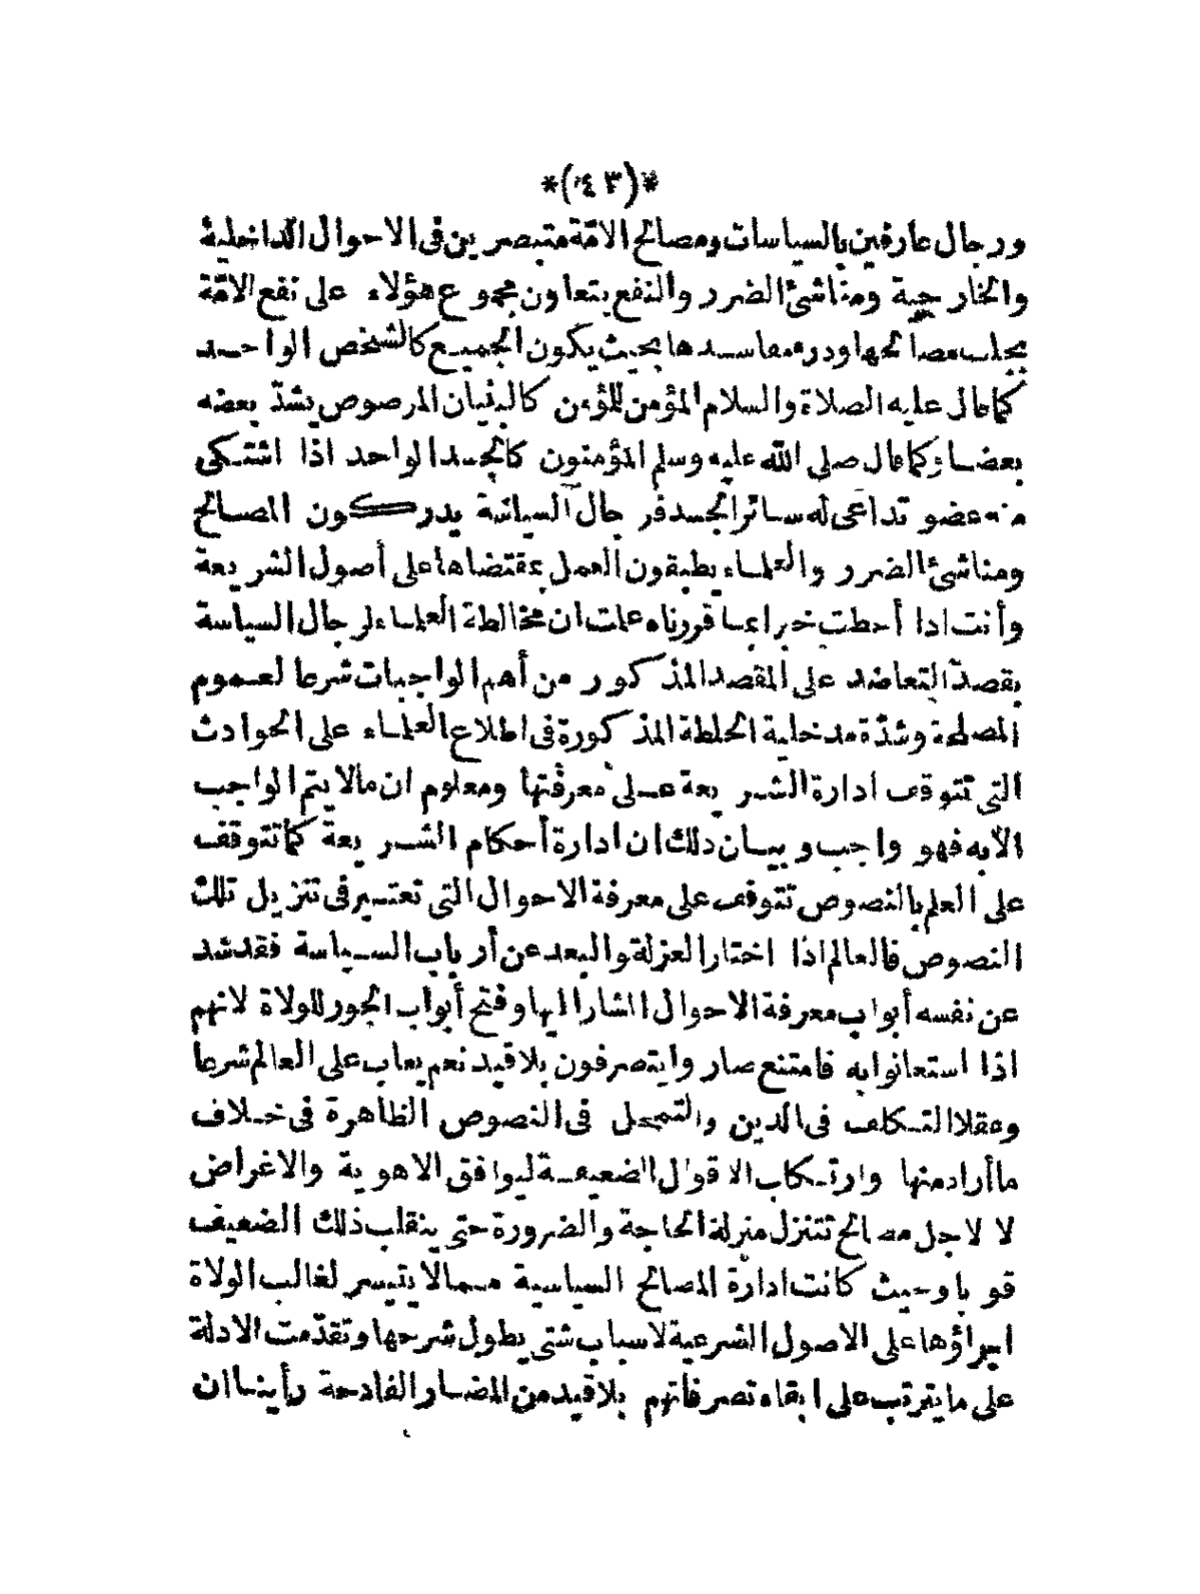 *(٤٣)*
ورجال عارفين بالسياسات ومصالح الامّة متبصرين فى الاحوال الداخلية
والخارجية ومناشئ الضرر والنفع يتعاون مجموع هؤلاء على نفع الامّة
بجلب مصالحها ودرء مفاسدها بحيث يكون الجميع كالشخص الواحد
كما قال عليه الصلاة والسلام المؤمن للمؤمن كالبنيان المرصوص يشدّ بعضه
بعضا وكما قال صلى الله عليه وسلم المؤمنون كالجسد الواحد اذا اشتكى
منه عضو تداعى له سائر الجسد فرجال السياسة يدركون المصالح
ومناشئ الضرر والعلماء يطبقون العمل بمقتضاها على أصول الشريعة
وأنت اذا أحطت خبرا بما قررناه علمت ان مخالطة العلماء لرجال السياسة
بقصد التعاضد على المقصد المذكور من أهم الواجبات شرعا لعموم
المصلحة وشدّة مدخلية الخلطة المذكورة فى اطلاع العلماء على الحوادث
التى تتوقف ادارة الشريعة على معرفتها ومعلوم ان ما لا يتم الواجب
الا به فهو واجب وبيان ذلك ان ادارة أحكام الشريعة كما تتوقف
على العلم بالنصوص تتوقف على معرفة الاحوال التى تعتبر فى تنزيل تلك
النصوص فالعالم اذا اختار العزلة والبعد عن أرباب السياسة فقد سد
عن نفسه أبواب معرفة الاحوال المشار اليها وفتح أبواب الجور للولاة لانهم
اذا استعانوا به فامتنع صاروا يتصرفون بلا قيد نعم يعاب على العالم شرعا
وعقلا التكلف فى الدين والتمحل فى النصوص الظاهرة فى خلاف
ما أراد منها وارتكاب الاقوال الضعيفة ليوافق الاهوية والاغراض
لا لاجل مصالح تتنزل منزلة الحاجة والضرورة حتى ينقلب ذلك الضعيف
قويا وحيث كانت ادارة المصالح السياسية مما لا يتيسر لغالب الولاة
اجراؤها على الاصول الشرعية لاسباب شتى يطول شرحها وتقدّمت الادلة
على ما يترتب على ابقاء تصرفاتهم بلا قيد من المضار الفادحة رأينا ان